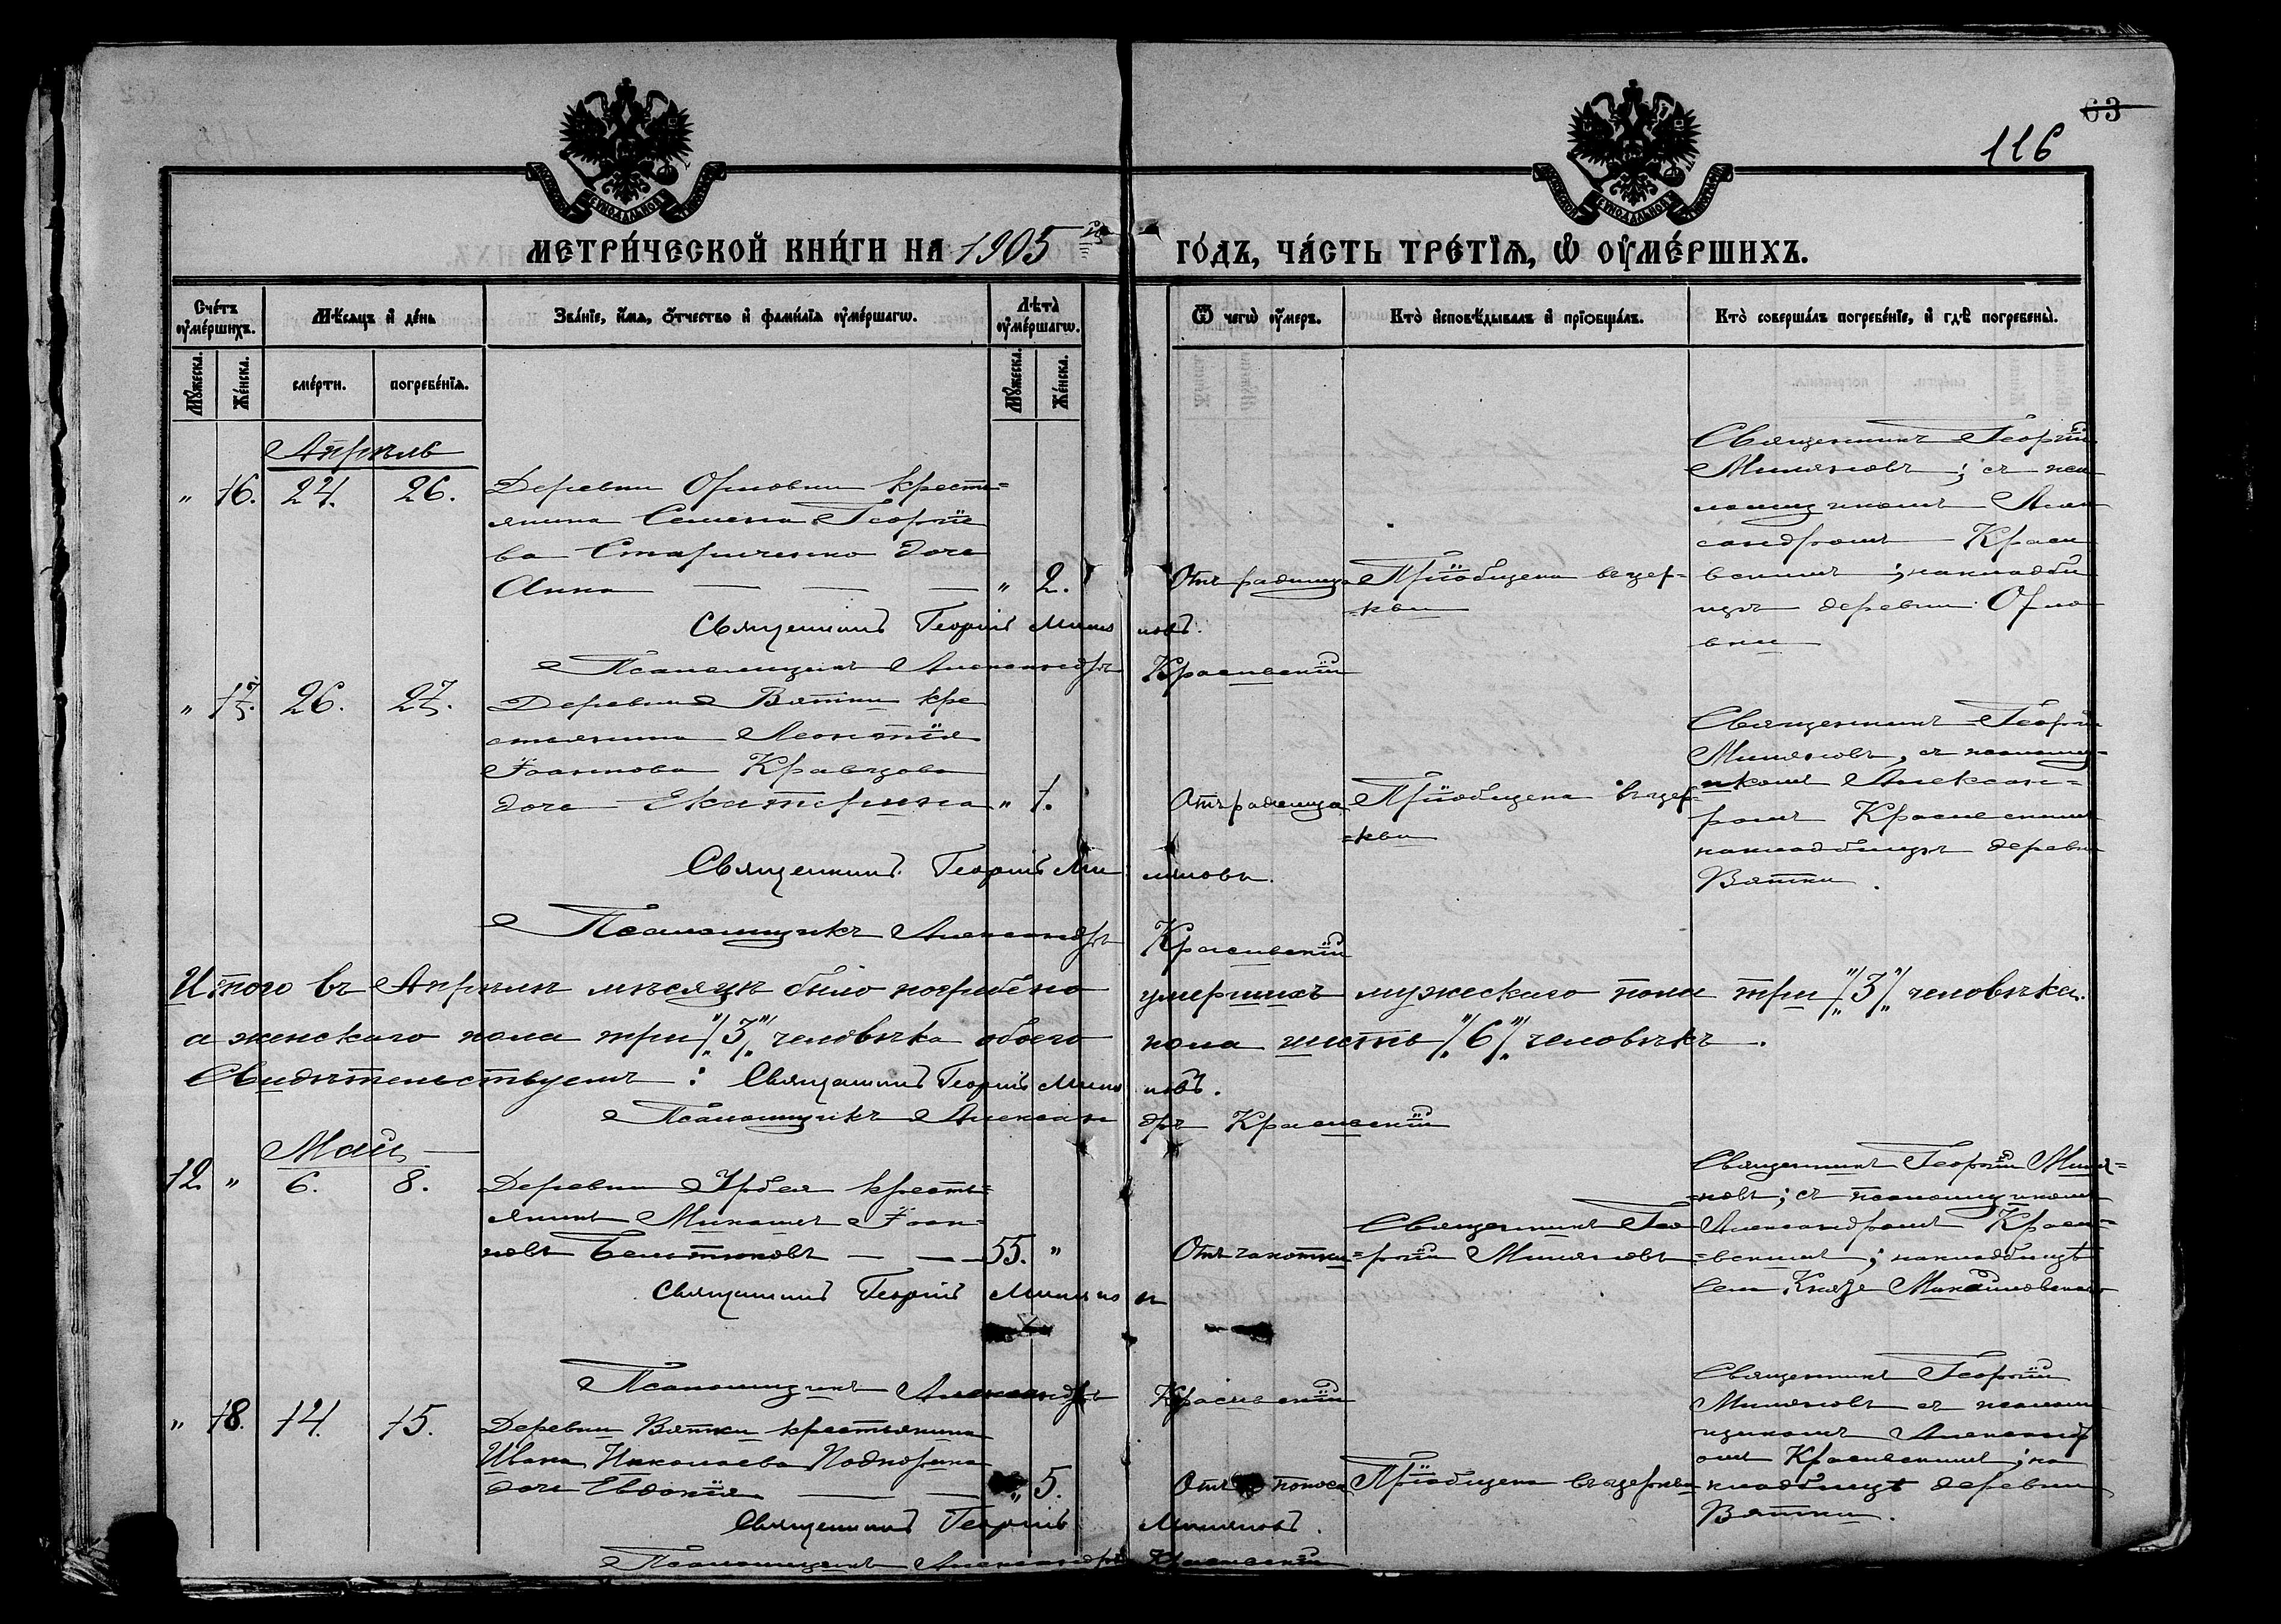 63
116
МЕТРИ́ЧЕСКОЙ КНИ́ГИ НА 1905
ГО́ДЪ, ЧА́СТЬ ТРЕ́ТІѦ, Ѡ ОУМЕ́РШИХЪ.
Сче́тъ оуме́ршихъ.
Мѣ́сяцъ и де́нь
Зва́ніе, и́мя, о́тчество и фами́лія оуме́ршагѡ.
Лѣта̀ оуме́ршагѡ.
Ѿ чегѡ̀ оу́меръ.
Кто̀ исповѣ́дывалъ и пріобща́лъ.
Кто̀ соверша́лъ погребе́ніе, и гдѣ̀ погребены̀.
Му́жеска.
Же́нска.
сме́рти.
погребе́нія.
Му́жеска.
Же́нска.
Апрѣль
„ 16. 24. 26.
Деревни Орловки кресть=
янина Семена Георгіе
ва Стариченко дочь
Анна — — — „ 2.
Отъ родимца
Пріобщена въ цер=
=кви
Священникъ Георгій
Миляновъ; съ пса
ломщикомъ Алек
сандромъ Краси
вскимъ; на кладби
щѣ деревни Орло
вки
Священникъ Георгій Миляновъ.
Псаломщикъ Александръ Красивскій
„ 17. 26. 27.
Деревни Вятки кре
стьянина Леонтія
Іоаннова Кравцова
дочь Екатерина „ 1.
Отъ родимца
Пріобщена въ цер=
=кви
Священникъ Георгій
Миляновъ, съ псаломщ=
икомъ Алексан=
ромъ Красивскимъ
на кладбищѣ деревни
Вятки.
Священникъ Георгій Миляновъ.
Псаломщикъ Александръ Красивскій
Итого въ Апрѣлѣ мѣсяцѣ было погребено умершихъ мужескаго пола три /„3„/ человѣка.
а женскаго пола три /„3„/ человѣка обоего пола шесть /„6„/ человѣкъ.
Свидѣтельствуемъ: Священникъ Георгій Миляновъ.
Псаломщикъ Александръ Красивскій
Май
12. „ 6. 8.
Деревни Урбея кресть=
янинъ Михаилъ Іоан=
новъ Бельтюковъ — — 55. „
Отъ чахотки
Священникъ Гео
=ргій Миляновъ
Священникъ Георгій Миля=
=новъ; съ псаломщикомъ
Александромъ Краси=
=вскимъ; на кладбищѣ
села Князе Михайловскаго
Священникъ Георгій Миляновъ
Псаломщикъ Александръ Красивскій
„ 18. 14. 15.
Деревни Вятки крестьянина
Ивана Николаева Подкорина
дочь Евдокія — — „ 5.
Отъ поноса
Пріобщена въ церкви
Священникъ Георгій
Миляновъ съ псалом
щикомъ Александр
омъ Красивскимъ; на
кладбищѣ деревни
Вятки.
Священникъ Георгій Миляновъ.
Псаломщикъ Александръ Красивскій